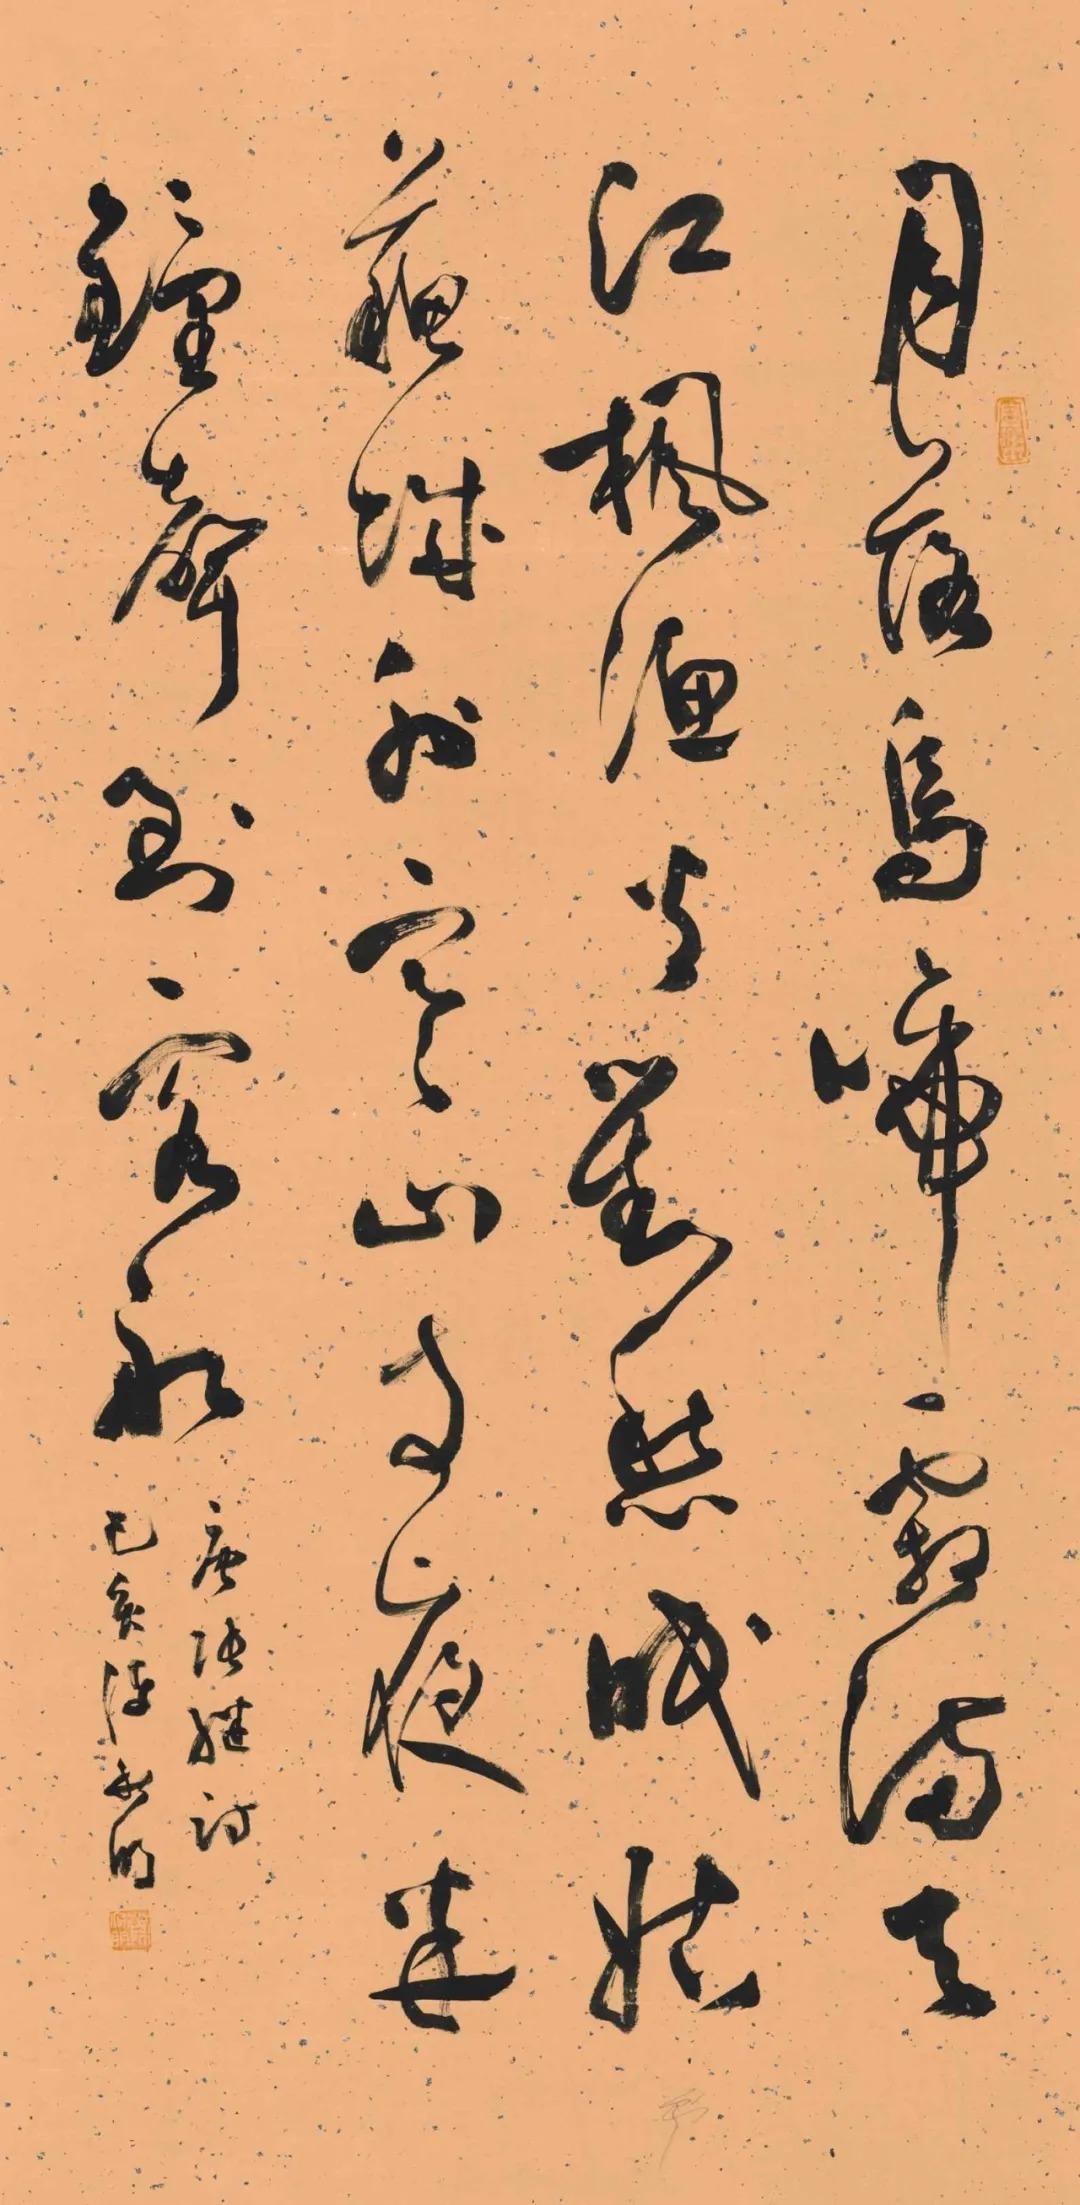 月落烏啼霜滿天
江楓漁火對愁眠姑
蘇城外寒山寺夜半
鐘聲到客船
唐張繼詩
己亥